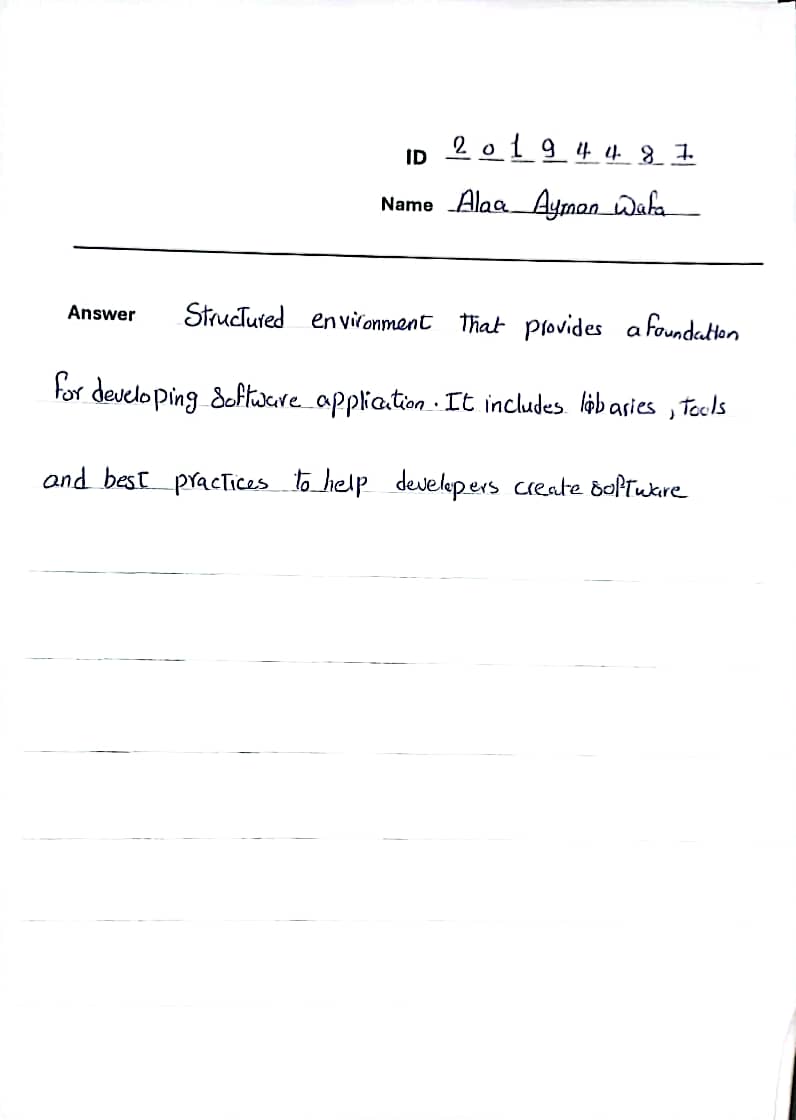 ID 20194487
Name Alaa Ayman Wafa
Answer Structured environment that provides a foundation
for developing software application. It includes libaries, tools
and best practices to help developers create software